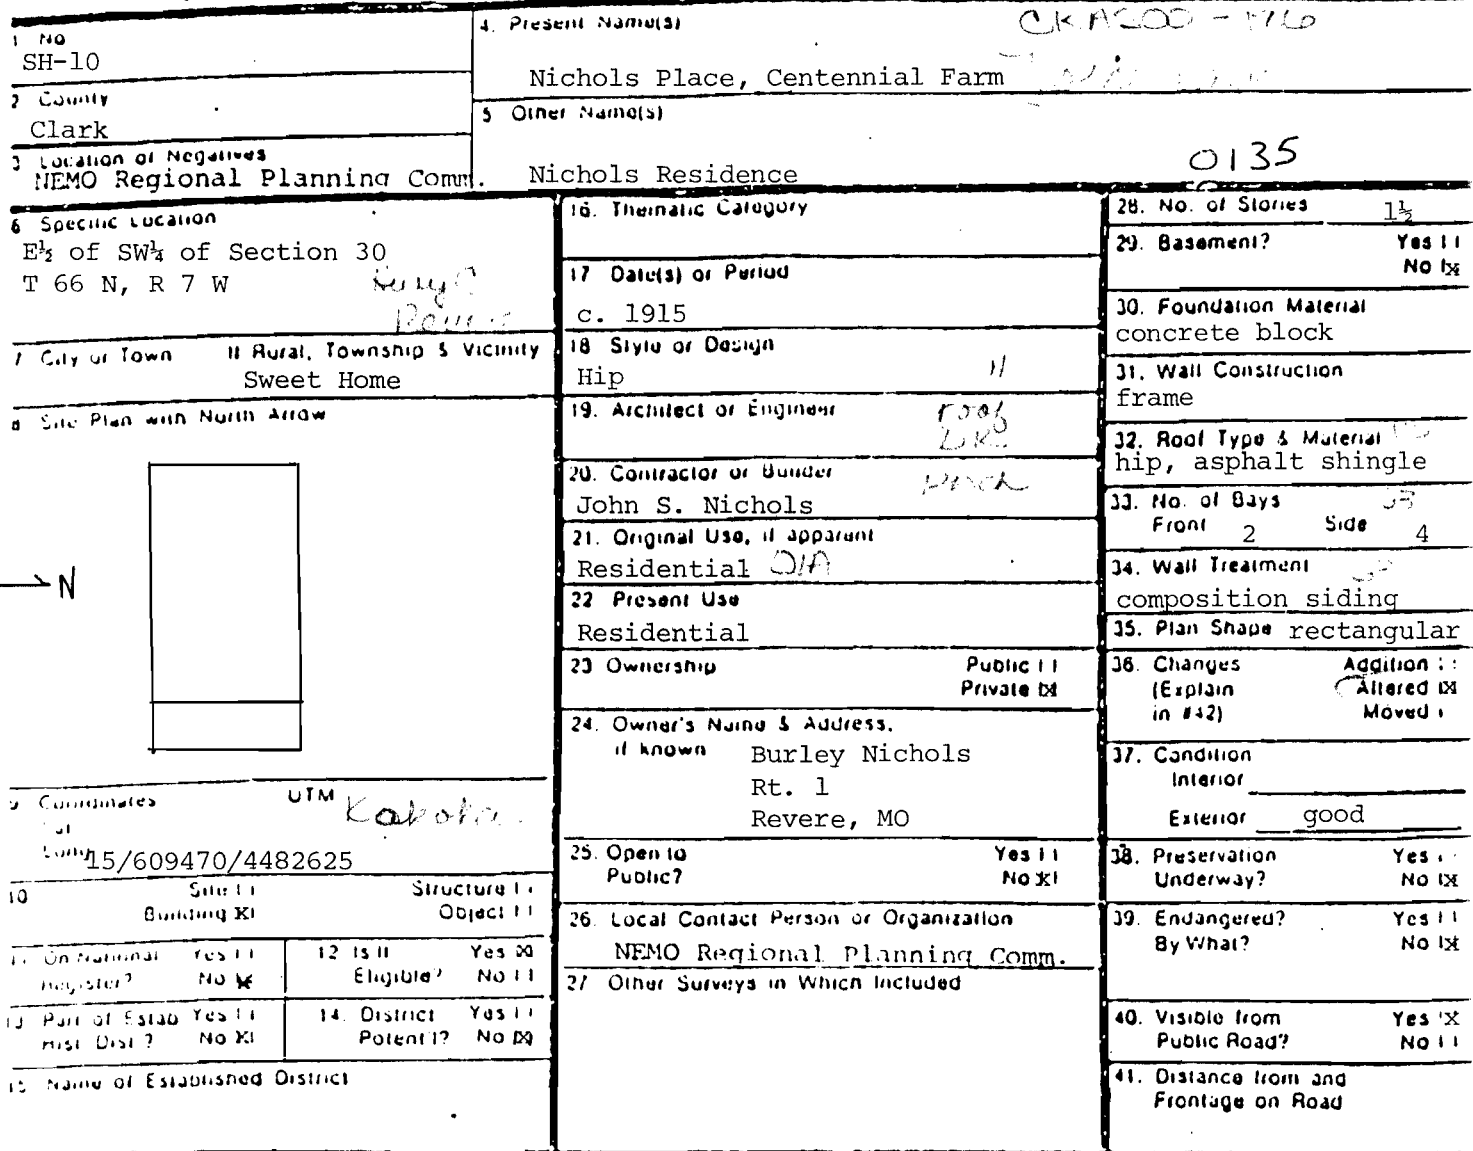 1 No
SH-10
2 County
Clark
3 Location of Negatives
NEMO Regional Planning Comm.
4. Present Name(s)
Nichols Place, Centennial Farm
5 Other Name(s)
Nichols Residence
0135
6 Specific Location
E½ of SW¼ of Section 30
T 66 N, R 7 W
7 City or Town If Rural, Township & Vicinity
Sweet Home
8 Site Plan with North Arrow
N
9 Coordinates UTM
Kahoka
Lat
Long
15/609470/4482625
10 Site Structure
Building X Object
11 On National Register? Yes No X
12 Is It Eligible? Yes X No
13 Part of Estab Hist. Dist.? Yes No X
14. District Potent'l? Yes No X
15 Name of Established District
16. Thematic Category
17 Date(s) or Period
c. 1915
18 Style or Design
Hip
19. Architect or Engineer
roof
20. Contractor or Builder
porch
John S. Nichols
21. Original Use, if apparent
Residential 01A
22 Present Use
Residential
23 Ownership Public
Private X
24. Owner's Name & Address,
if known Burley Nichols
Rt. 1
Revere, MO
25. Open to Yes
Public? No X
26. Local Contact Person or Organization
NEMO Regional Planning Comm.
27 Other Surveys in Which Included
28. No. of Stories 1½
29. Basement? Yes
No X
30. Foundation Material
concrete block
31. Wall Construction
frame
32. Roof Type & Material
hip, asphalt shingle
33. No. of Bays
Front 2 Side 4
34. Wall Treatment
composition siding
35. Plan Shape rectangular
36. Changes Addition
(Explain Altered X
in #42) Moved
37. Condition
Interior
Exterior good
38. Preservation Yes
Underway? No X
39. Endangered? Yes
By What? No X
40. Visible from Yes X
Public Road? No
41. Distance from and
Frontage on Road